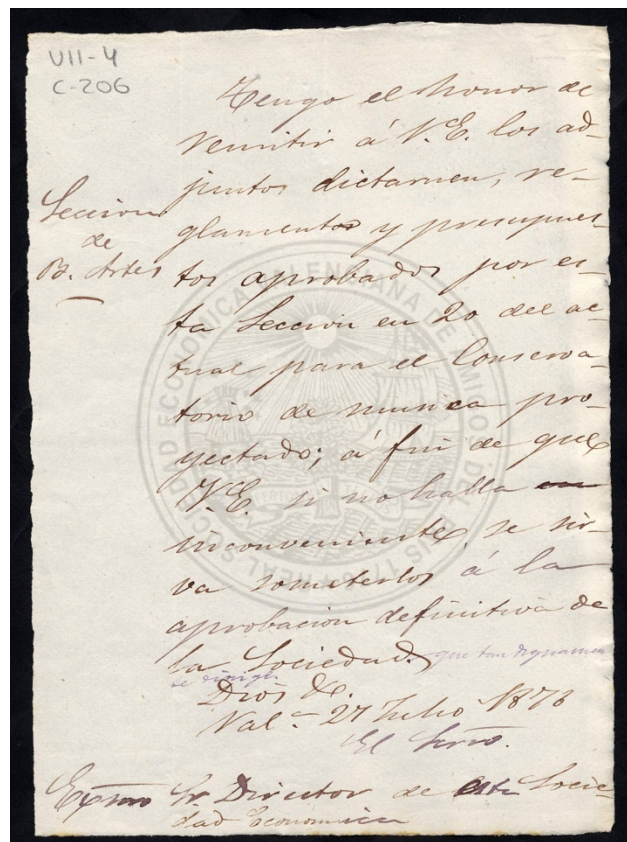 VII-4
C-206
Seccion
de
B. Artes
Tengo el honor de
remitir á V.E. los ad-
juntos dictamen, re-
glamentos y presupues-
tos aprobados por es-
ta Seccion en 20 del ac-
tual para el Conserva-
torio de musica pro-
yectado; á fin de que
V.E. si no halla
inconveniente, se sir-
va someterlos á la
aprobacion definitiva de
la Sociedad. que tan dignamen
te dirige.
Dios &c.
Val.ª 27 Julio 1878
El Srio.
Exmo Sr Director de esta Socie-
dad Economica
REAL SOCIEDAD ECONOMICA VALENCIANA DE AMIGOS DEL PAIS 1776